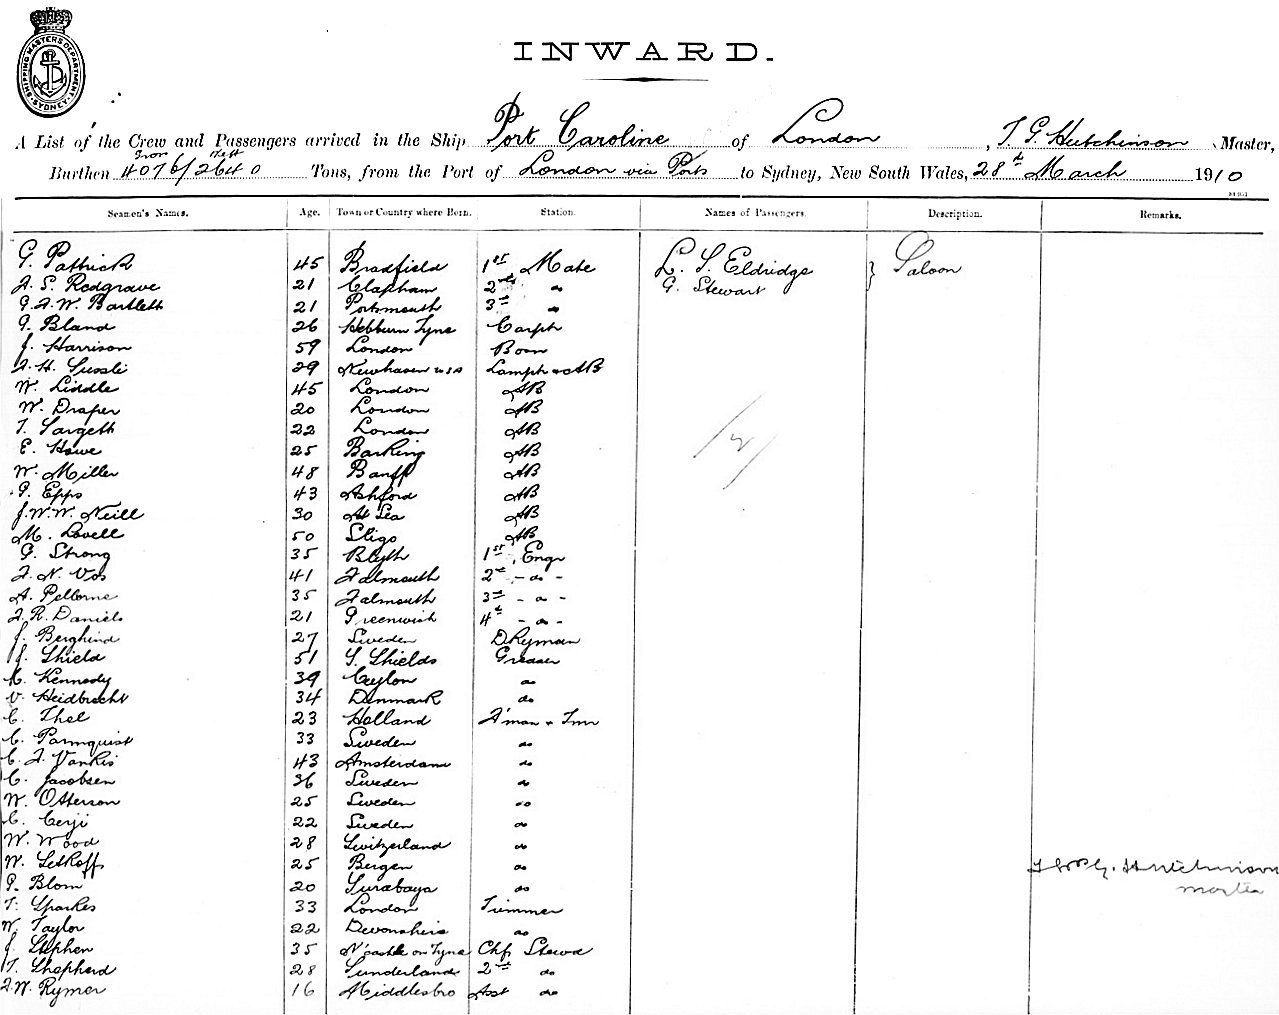 SHIPPING MASTER'S DEPARTMENT SYDNEY
INWARD.
A List of the Crew and Passengers arrived in the Ship Port Caroline of London, T. G. Hutchinson Master,
Gross Nett
Burthen 4076/2640 Tons, from the Port of London via Ports to Sydney, New South Wales, 28th March 1910
Seamen's Names. Age. Town or Country where Born. Station. Names of Passengers. Description. Remarks.
G. Pattrick 45 Bradfield 1st Mate L. S. Eldridge } Saloon
A. S. Redgrave 21 Clapham 2nd do G. Stewart
G. A. W. Bartlett 21 Portsmouth 3rd do
G. Bland 26 Hebburn Tyne Carptr
J. Harrison 59 London Bosn
A. H. 29 Newhaven USA Lamptr & AB
W. Liddle 45 London AB
W. Draper 20 London AB
T. Sargett 22 London AB
E. Howe 25 Barking AB
W. Miller 48 Banff AB
P. Epps 43 Ashford AB
J. W. W. Neill 30 At Sea AB
M. Lovell 50 Sligo AB
G. Strong 35 Blyth 1st Engr
A. N. Vos 41 Falmouth 2nd - do -
A. Pellorne 35 Falmouth 3rd - do -
F. R. Daniels 21 Greenwich 4th - do -
J. Berglind 27 Sweden DKyman
J. Shield 51 S. Shields Greaser
K. Kennedy 39 Ceylon do
V. Heidbrecht 34 Denmark do
C. Thel 23 Holland F'man & Tmr
C. Parmquist 33 Sweden do
C. F. Vankis 43 Amsterdam do
C. Jacobsen 36 Sweden do
W. Otterson 25 Sweden do
C. Cerji 22 Sweden do
W. Wood 28 Switzerland do
W. Setkoff 25 Bergen do
T. G. Hutchinson
P. Blom 20 Surabaya do
master
T. Sparkes 33 London Trimmer
W. Taylor 22 Devonshire do
J. Stephen 35 N'castle on Tyne Chf Stewd
T. Shepherd 28 Sunderland 2nd do
F. W. Rymer 16 Middlesbro Asst do